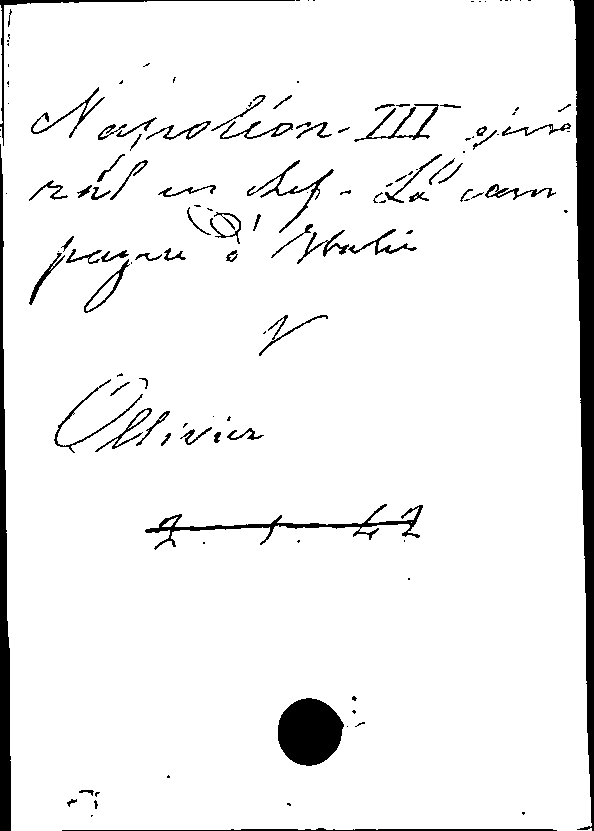 Napoléon-III géné
ral en chef - La cam
pagne d'Italie
V
Ollivier
2. 1. 42